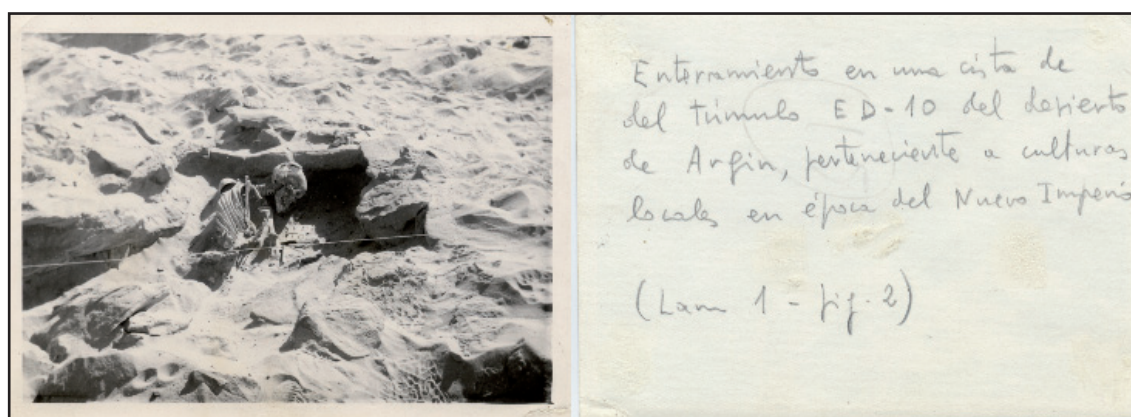 Enterramiento en una cista de
del túmulo ED-10 del desierto
de Argin, perteneciente a culturas
locales en época del Nuevo Imperio
(Lam 1 - fig. 2)